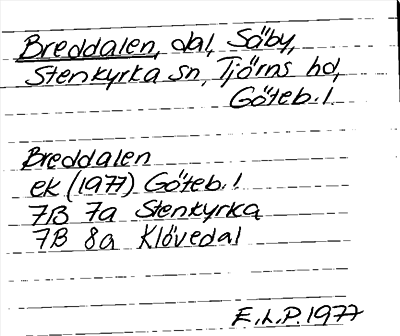 Breddalen, dal, Säby,
Stenkyrka sn, Tjörns hd,
Göteb. l.
Breddalen
ek (1977) Göteb. l
7B 7a Stenkyrka
7B 8a Klövedal
E.L.P. 1977